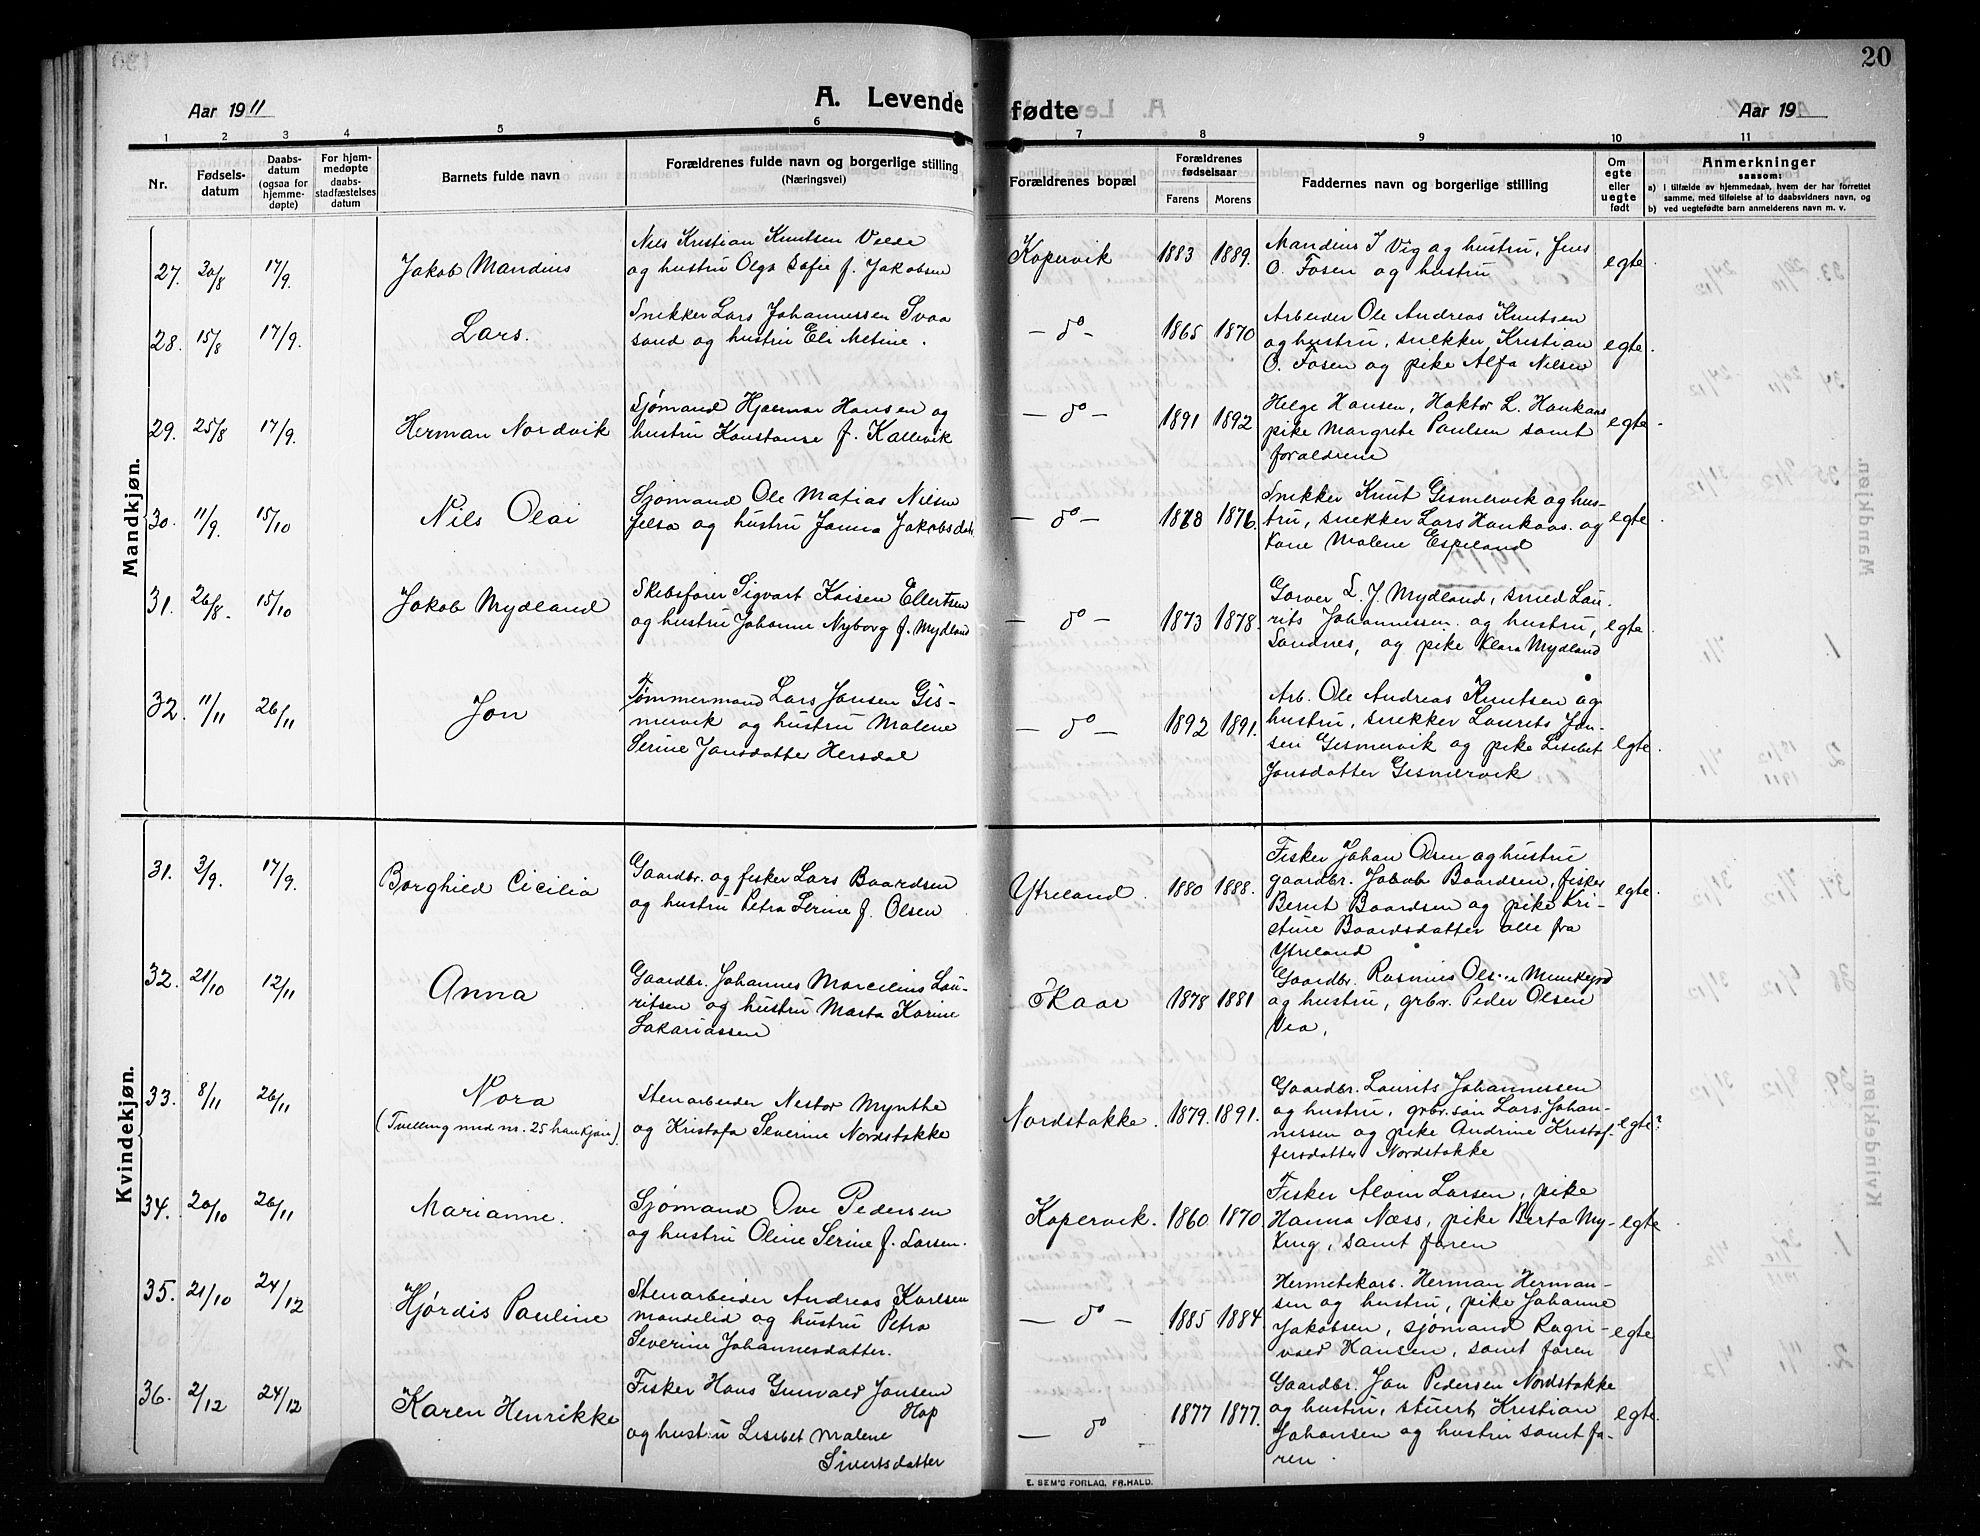 20
Aar 1911
A. Levende
fødte
Aar 19
1 2 3 4 5 6
7 8 9 10 11
Nr.
Fødsels-
datum
Daabs-
datum
(ogsaa for
hjemme-
døpte)
For hjem-
medøpte
daabs-
stadfæstelses
datum
Barnets fulde navn
Forældrenes fulde navn og borgerlige stilling
(Næringsvei)
Forældrenes bopæl
Forældrenes
fødselsaar
Farens Morens
Faddernes navn og borgerlige stilling
Om
egte
eller
uegte
født
Anmerkninger
saasom:
a) i tilfælde av hjemmedaab, hvem der har forrettet
samme, med tilføielse af to daabsvidners navn, og
b) ved uegtefødte barn anmelderens navn m. v.
Mandkjøn.
27. 30/8 17/9. Jakob Mandius
Nils Kristian Knutsen Veede
og hustru Olga Sofie f. Jakobsen
Kopervik 1883 1889.
Mandius J Vig og hustru, Jens
O. Fosen og hustru
egte.
28. 15/8 17/9. Lars.
Snekker Lars Johannessen Svaa
sand og hustru Eli Metine.
— do — 1865 1870
Arbeider Ole Andreas Knutsen
og hustru, snekker Kristian
O. Fosen og pike Alfa Nilsen
egte.
29. 25/8 17/9. Herman Nordvik
Sjømand Hjalmar Hansen og
hustru Konstanse f. Kallevik
— do — 1891 1892
Helge Hansen, Haktor L. Haukaas
pike Margrete Paulsen samt
foraldrene
egte.
30. 11/9. 15/10 Nils Olai
Sjømand Ole Matias Nilsen
Jelsa og hustru Janna Jakobsdatt.
— do — 1873 1876.
Snekker Knut Gismervik og hus-
tru, snekker Lars Haukaas. og
Kone Malene Espeland
egte.
31. 26/8. 15/10 Jakob Mydland
Skibsfører Sigvart Kaisen Ellertsen
og hustru Johanne Nyborg f. Mydland
— do — 1873 1878.
Garver L. J. Mydland, smed Lau-
rits Johannessen og hustru,
Sandnes, og pike Klara Mydland
egte.
32. 11/11 26/11 Jon
Tømmermand Lars Jansen Gis-
mervik og hustru Malene
Serine Jonsdatter Hersdal
— do — 1892 1891.
Arb. Ole Andreas Knutsen og
hustru, snekker Laurits Jan-
sen Gismervik og pike Lisebet
Jonsdatter Gismervik
egte.
Kvindekjøn.
31. 3/9. 17/9. Borghild Cicilia
Gaardbr. og fisker Lars Baardsen
og hustru Petra Serine f. Olsen
Ytreland. 1880 1888.
Fisker Johan Olsen og hustru
gaardbr. Jakob Baardsen, fisker
Bernt Baardsen og pike Kri-
stine Baardsdatter alle fra
Ytreland
egte.
32. 21/10 12/11 Anna
Gaardbr. Johannes Marcelius Lau-
ritsen og hustru Marta Karine
Sakariassen
Skaar 1878 1881
Gaardbr. Rasmus Olsen Munkejord
og hustru, grbr. Peder Olsen
Vea,
33. 8/11 26/11 Nora
(Tvelling med nr. 25 hankjøn).
Stenarbeider Nestor Mynthe
og Kristofa Severine Nordstokke
Nordstokke. 1879. 1891.
Gaardbr. Laurits Johannessen
og hustru, grbr.søn Lars Johan-
nessen og pike Andrine Kristof-
fersdatter Nordstokke
egte?
34. 20/10 26/11 Marianne.
Sjømand Ove Pedersen
og hustru Oline Serine f. Larsen.
Kopervik. 1860 1870.
Fisker Alvin Larsen, pike
Hanna Næss, pike Berta My-
king, samt faren
egte
35. 21/10 24/12 Hjørdis Pauline
Stenarbeider Andreas Karlsen
Mandelid og hustru Petra
Severine Johannesdatter.
— do — 1885 1884.
Hermetikarb. Herman Herman-
sen og hustru, pike Johanne
Jakobsen, sjømand Ragn-
vald Hansen, samt faren
egte
36. 2/12 24/12 Karen Henrikke
Fisker Hans Gunvald Jansen
Hop
og hustru Lisebet Malene
Sivertsdatter
— do 1877 1877.
Gaardbr. Jan Pedersen Nordstokke
og hustru, stuert Kristian
Johansen og hustru samt fa-
ren.
egte.
E. SEM'S FORLAG, FR.HALD.